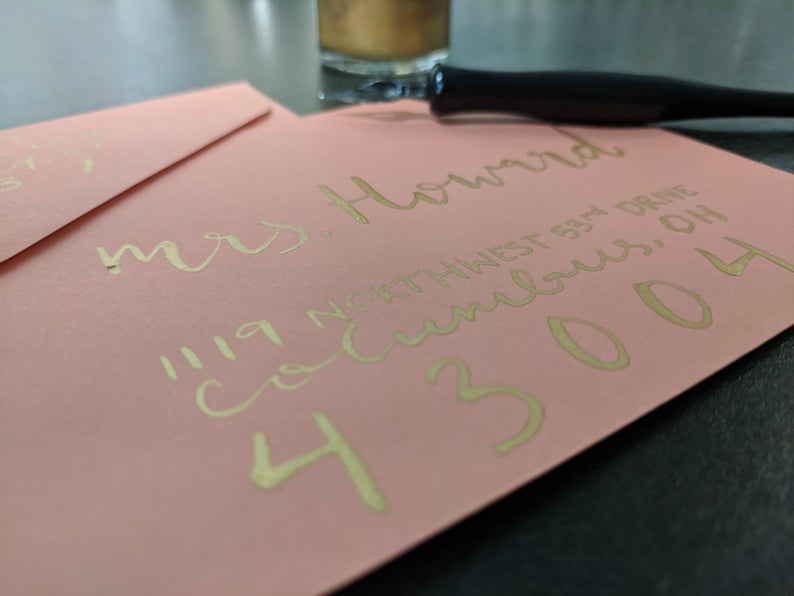 mrs. Howard
1119 NORTHWEST 53rd DRIVE
Columbus, OH
43004